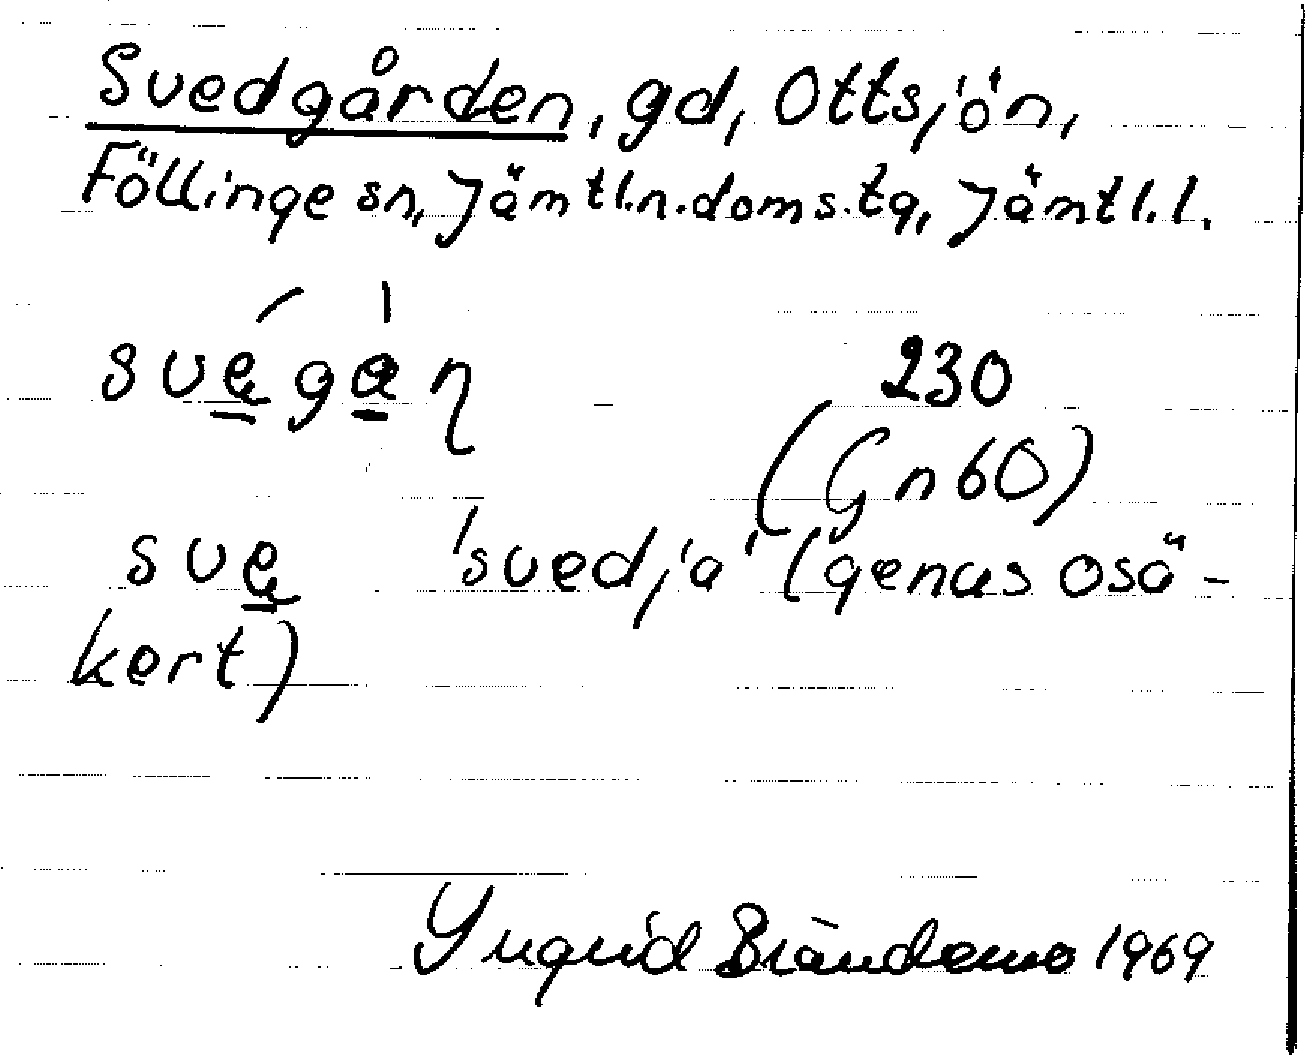 Svedgården, gd, Ottsjön,
Föllinge sn, Jämtl.n.doms.tg, Jämtl.l.
svęgạŋ 230
(Gn60)
svę 'svedja' (genus osä-
kert)
Yngrid Brändemo 1969